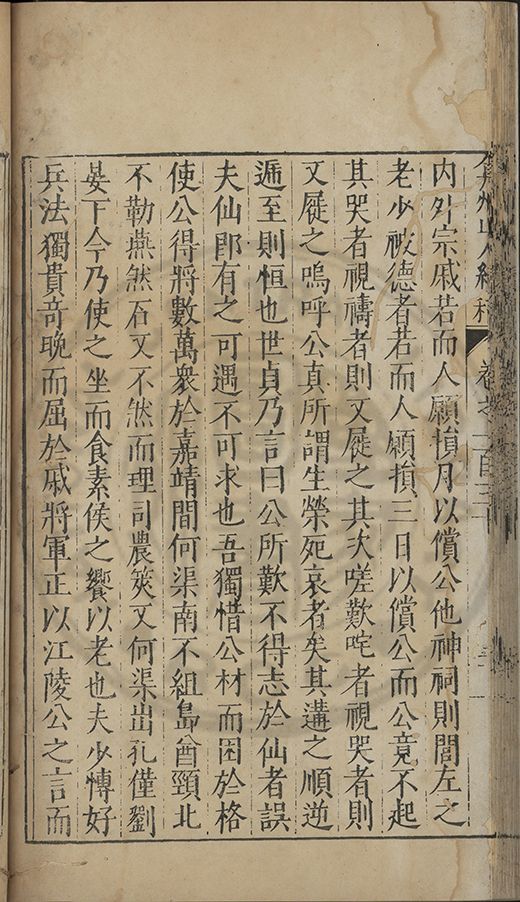 弇州山人續稿 卷之一百三十
內外宗戚若而人願損月以償公他神祠則閭左之
老少被德者若而人願損三日以償公而公竟不起
其哭者視禱者則又屣之其次嗟歎咤者視哭者則
又屣之嗚呼公真所謂生榮死哀者矣其遘之順逆
遞至則恒也世貞乃言曰公所歎不得志於仙者誤
夫仙郎有之可遇不可求也吾獨惜公材而困於格
使公得將數萬衆於嘉靖間何渠南不組島酋頸北
不勒燕然石又不然而理司農筴又何渠出孔僅劉
晏下今乃使之坐而食素侯之饗以老也夫少愽好
兵法獨貴竒晚而屈於戚將軍正以江陵公之言而